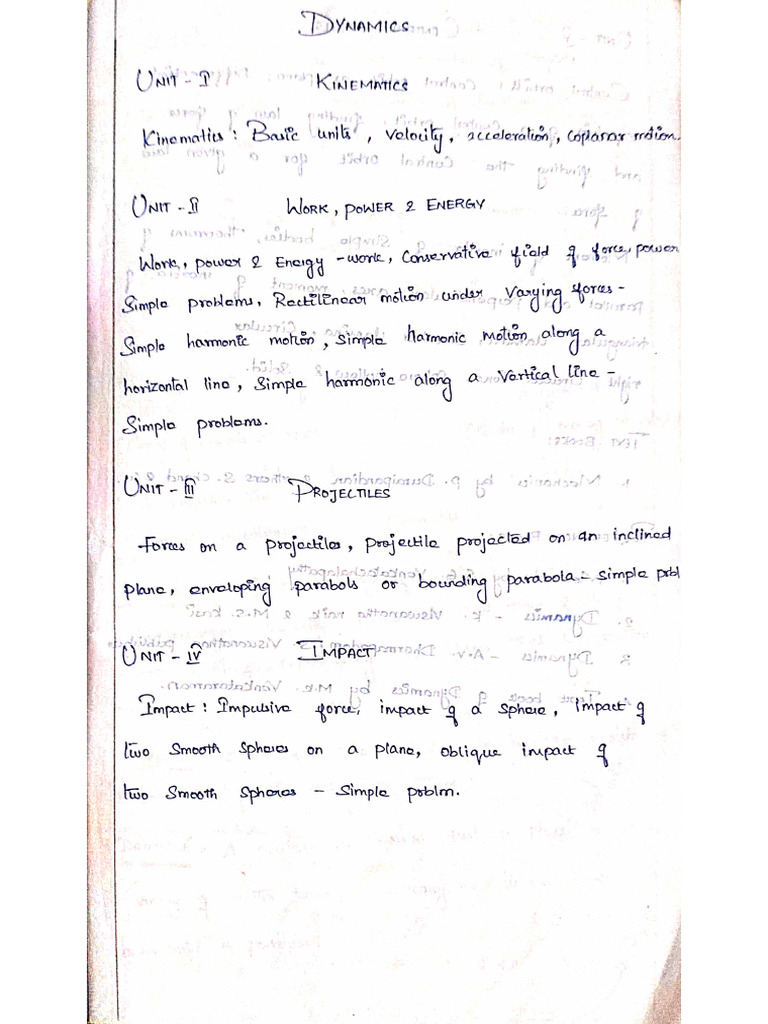 DYNAMICS
UNIT - I KINEMATICS
Kinematics : Basic units, velocity, acceleration, coplanar motion.
UNIT - II WORK, POWER & ENERGY
Work, power & Energy - work, Conservative field of force, power
Simple problems, Rectilinear motion under Varying forces -
Simple harmonic motion, Simple harmonic motion along a
horizontal line, Simple harmonic along a Vertical line -
Simple problems.
UNIT - III PROJECTILES
Forces on a projectiles, projectile projected on an inclined
plane, enveloping parabols or bounding parabola - Simple prbl
UNIT - IV IMPACT
Impact : Impulsive force, impact of a sphere, impact of
two smooth spheres on a plane, oblique impact of
two smooth spheres - Simple problm.